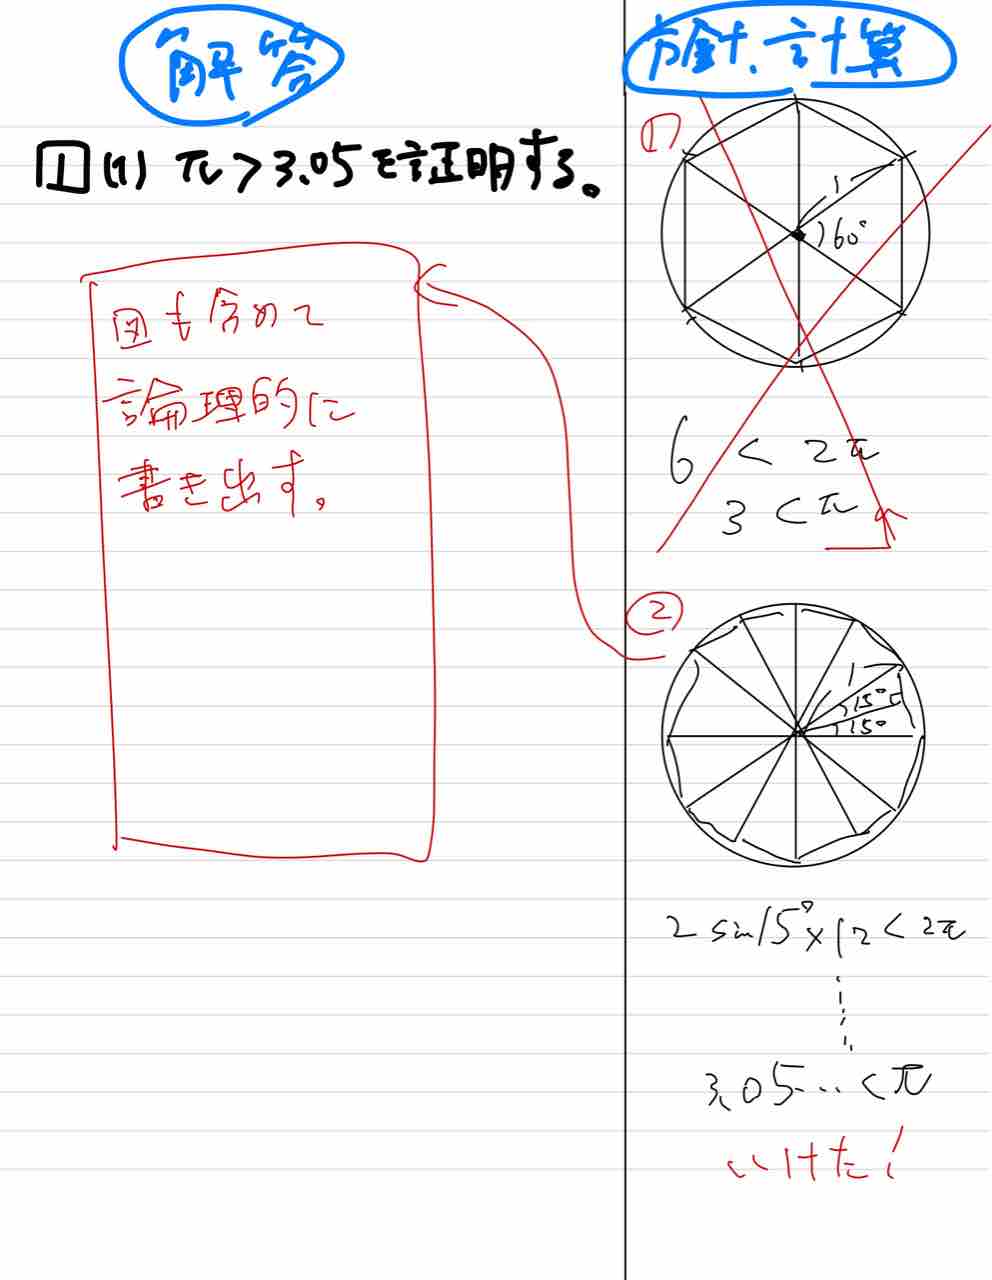 解答
1 (1) π>3.05を証明する。
図も含めて
論理的に
書き出す。
方針、計算
①
1
60°
6 < 2π
3 < π
②
1
15°
15°
2 sin15°×12 < 2π
3.05... < π
いけた!